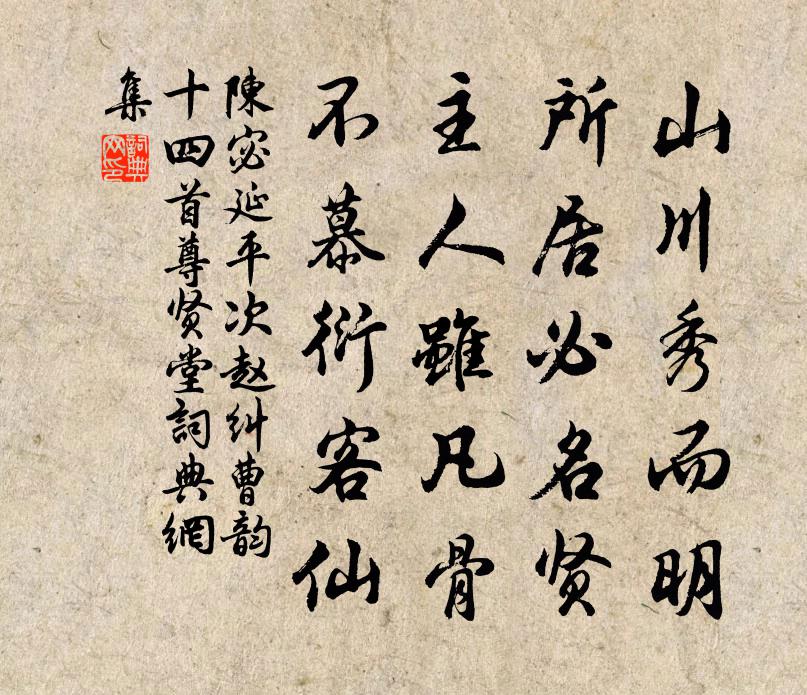 山川秀而明
所居必名贤
主人雖凡骨
不慕衍客仙
陳宓延平次赵纠曹韵
十四首尊贤堂詞典網
集
詞典网印